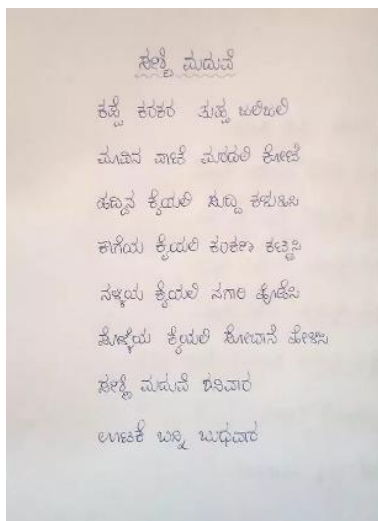 ಮದುವೆ
ಕಪ್ಪೆ ಕರಕರ ತುಪ್ಪ ಜಲಿಜಲಿ
ಮಾವಿನ ವಾಟೆ ಮರದಲಿ ಕೋಟೆ
ಹದ್ದಿನ ಕೈಯಲಿ ಸುದ್ದಿ ಕಳುಹಿಸಿ
ಕಾಗೆಯ ಕೈಯಲಿ ಕಂಕಣ ಕಟ್ಟಿಸಿ
ನಳ್ಳಿಯ ಕೈಯಲಿ ನಗಾರಿ ಹೊಡೆಸಿ
ಸೊಳ್ಳೆಯ ಕೈಯಲಿ ಸೋಬಾನೆ ಹೇಳಿಸಿ
ಮದುವೆ ಶನಿವಾರ
ಊಟಕೆ ಬನ್ನಿ ಬುಧವಾರ